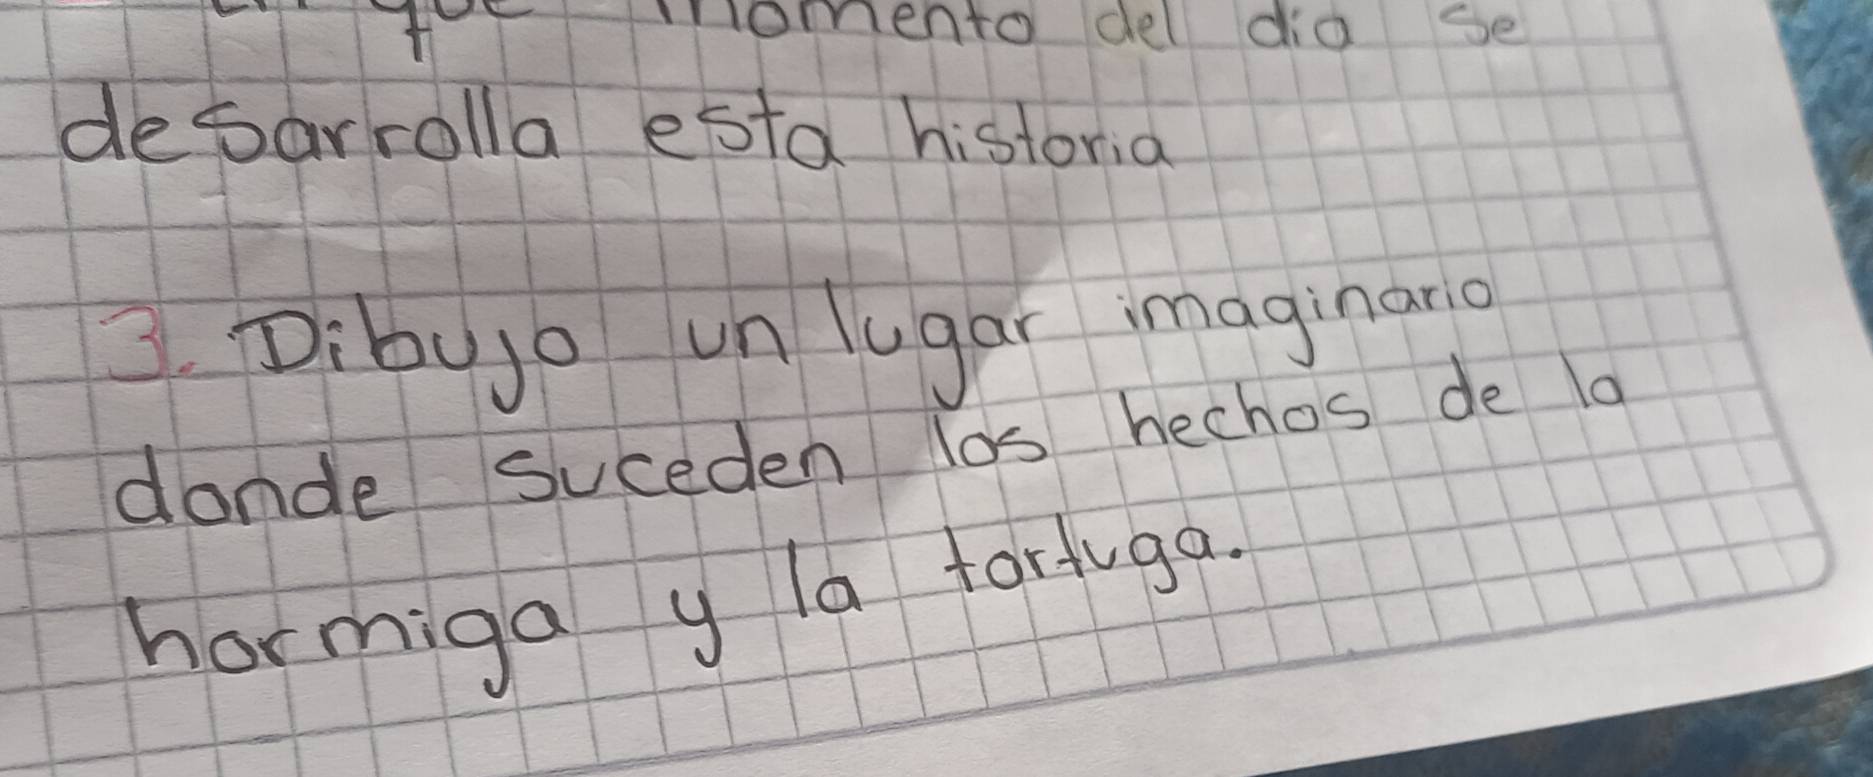 en que momento del dia se
desarrolla esta historia
3. Dibujo un lugar imaginario
donde suceden los hechos de la
hormiga y la tortuga.